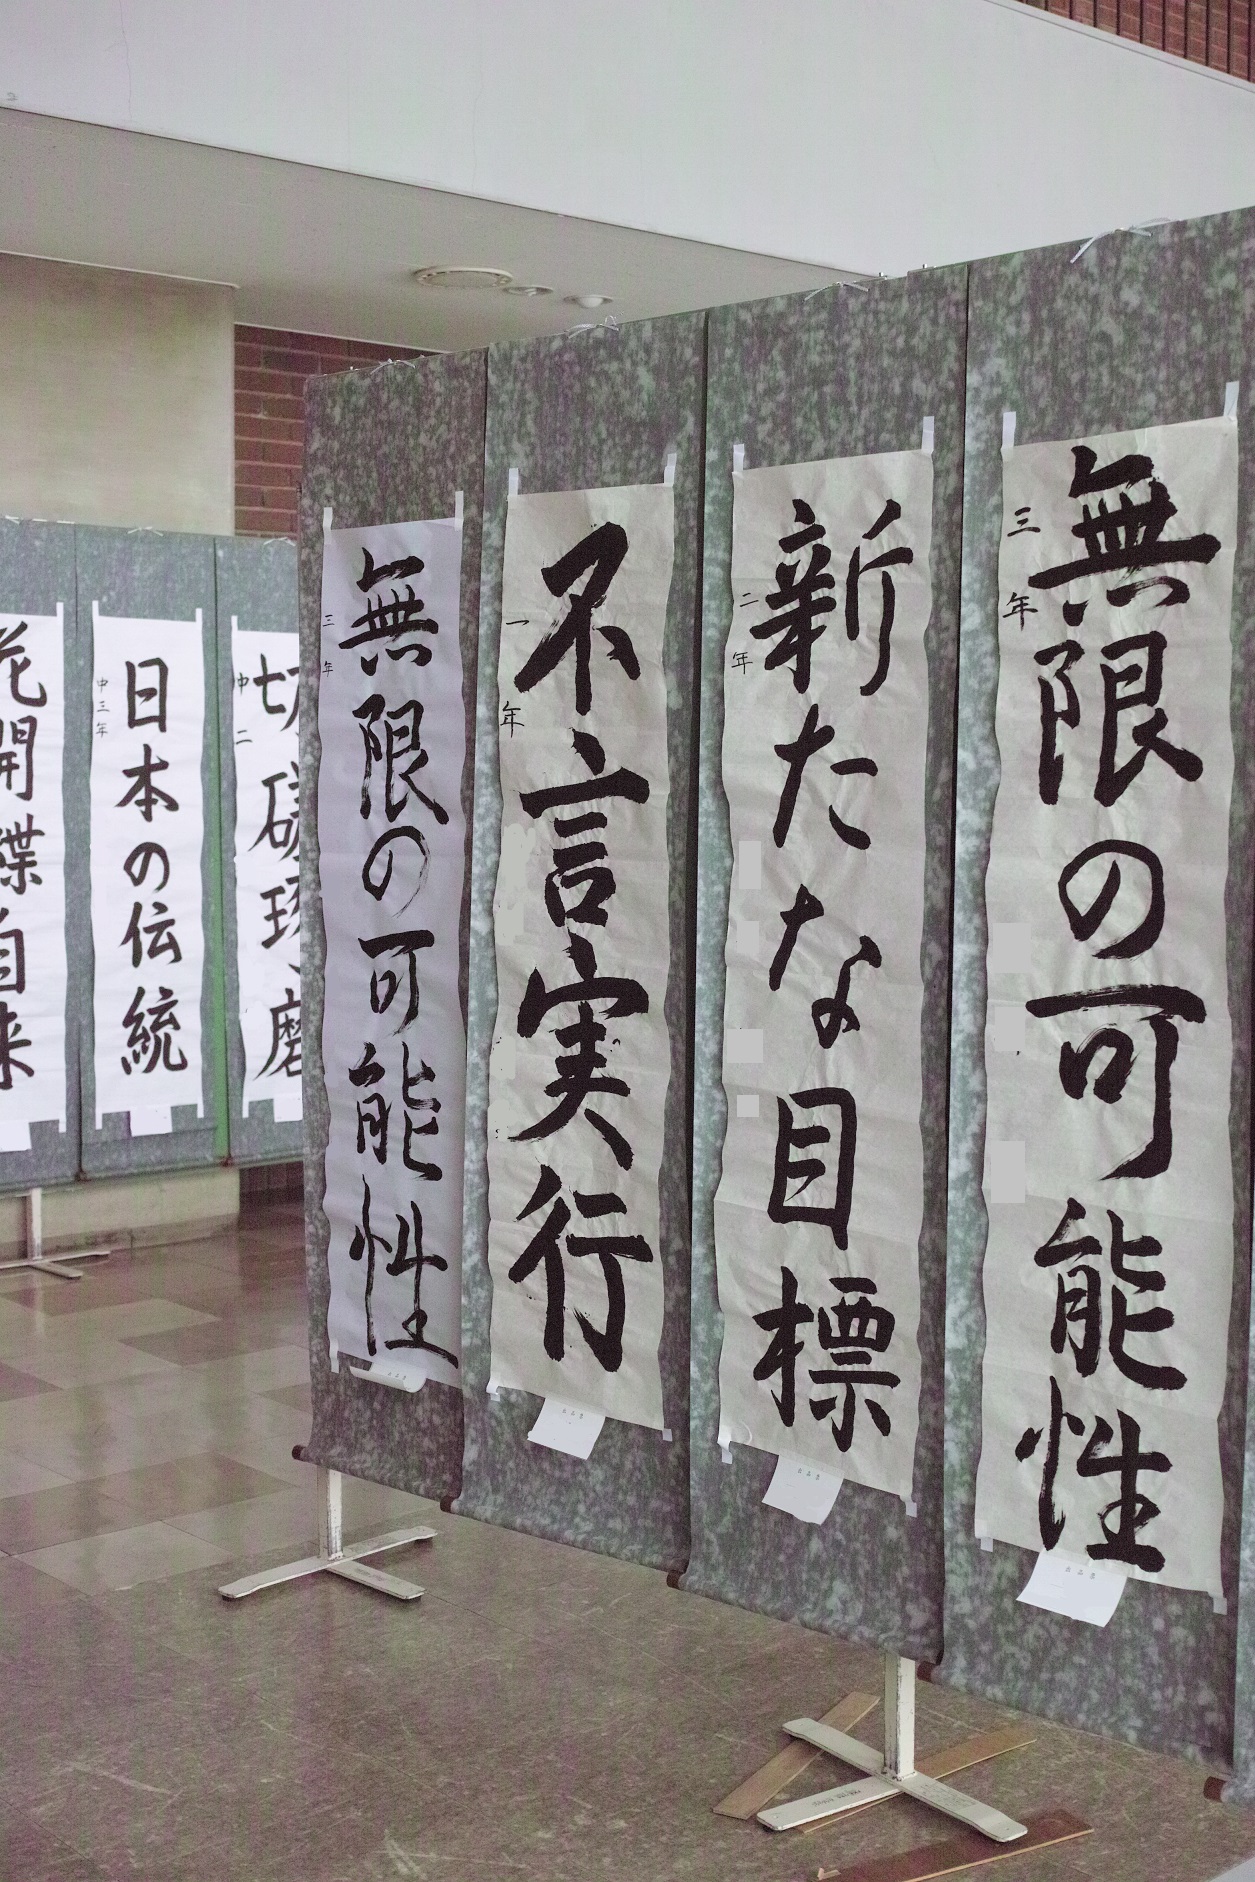 無限の可能性
三年
新たな目標
二年
不言実行
一年
無限の可能性
三年
切磋琢磨
中二
日本の伝統
中三年
花開蝶自来